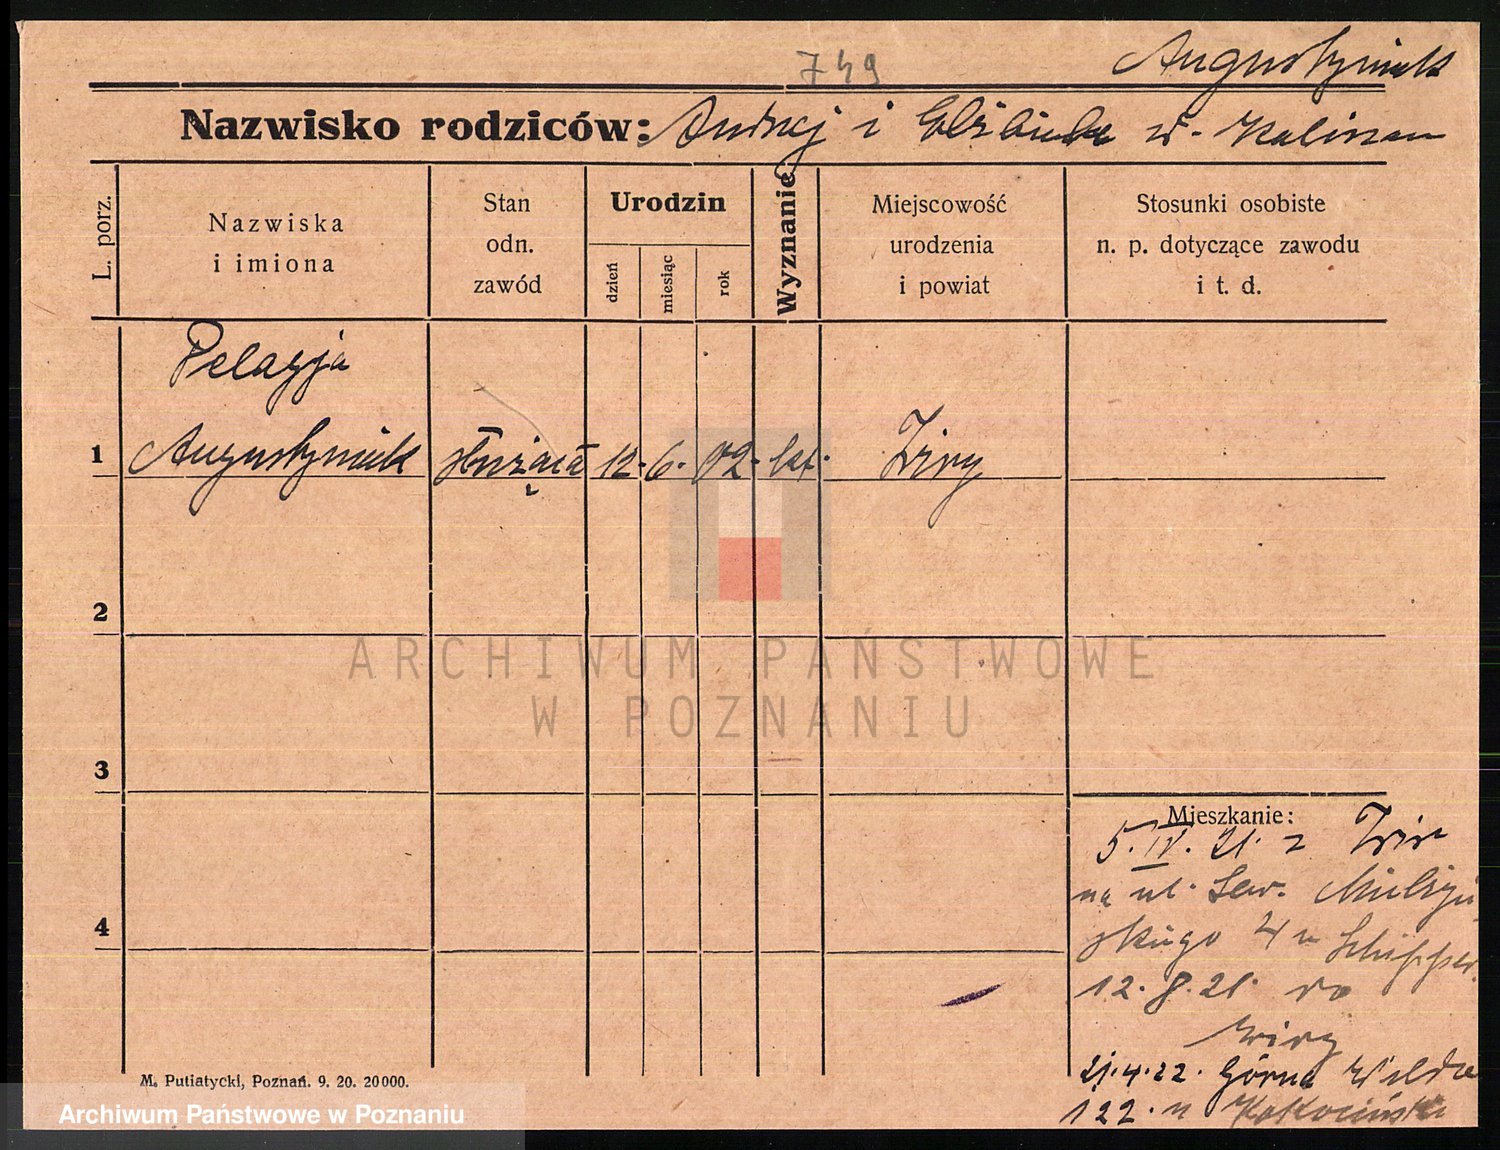 749
Augustyniak
Nazwisko rodziców: Andrzej i Elżbieta w.
L. porz.
Nazwiska
i imiona
Stan
odn.
zawód
Urodzin
dzień
miesiąc
rok
Wyznanie
Miejscowość
urodzenia
i powiat
Stosunki osobiste
n. p. dotyczące zawodu
i t. d.
Pelagja
1 Augustyniak służąca 12. 6. 02. kat.
2
3
4
ARCHIWUM PAŃSTWOWE
W POZNANIU
Mieszkanie:
5. IV. 21. z
na ul. Sew. Mielżyń-
skiego 4 u
12. 8. 21. do
21.4.22. Górna Wilda
122. u
M. Putiatycki, Poznań. 9. 20. 20000.
Archiwum Państwowe w Poznaniu